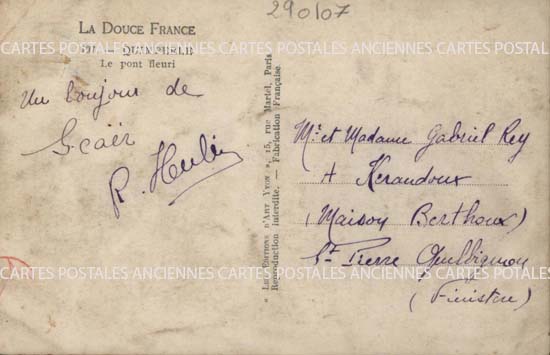 290107
La Douce France
— QUIMPERLÉ
Le pont fleuri
CARTES POSTALES ANCIENNES CARTES POSTALES ANCIENNES CARTES POSTALES
Un bonjour de
Scaër
R. Herlé
" Les Editions d'Art Yvon ", 15, rue Martel, Paris
Reproduction interdite. — Fabrication Française.
Mr et Madame Gabriel Rey
A Kerandoux
(Maison Berthoux)
St Pierre Quilbignon
(Finistère)
CARTES POSTALES ANCIENNES CARTES POSTALES ANCIENNES CARTES POSTALES